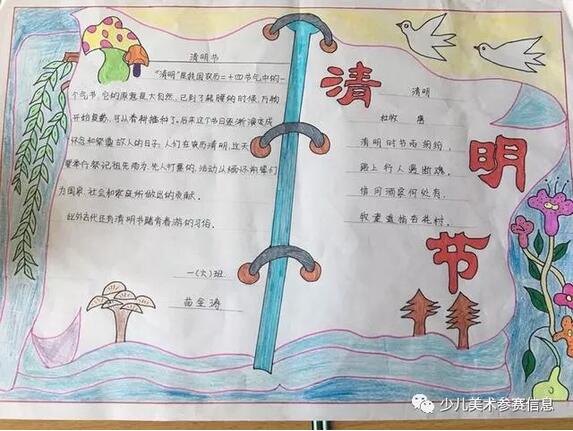 清明节
"清明"是我国农历二十四节气中的一
个气节,它的原意是大自然,已到了气暖的时候,万物
开始复苏,可以春耕播种了。后来这个节日逐渐演变成
怀念和祭奠故人的日子。人们在农历清明,这天
要举行祭祀祖先,为先人打墓的活动以缅怀前辈们
为国家、社会和家庭所做出的贡献。
此外古代还有清明节踏青春游的习俗。
一(六)班
苗金涛
清明节
清明
杜牧
清明时节雨纷纷,
路上行人欲断魂。
借问酒家何处有,
牧童遥指杏花村。
少儿美术参赛信息